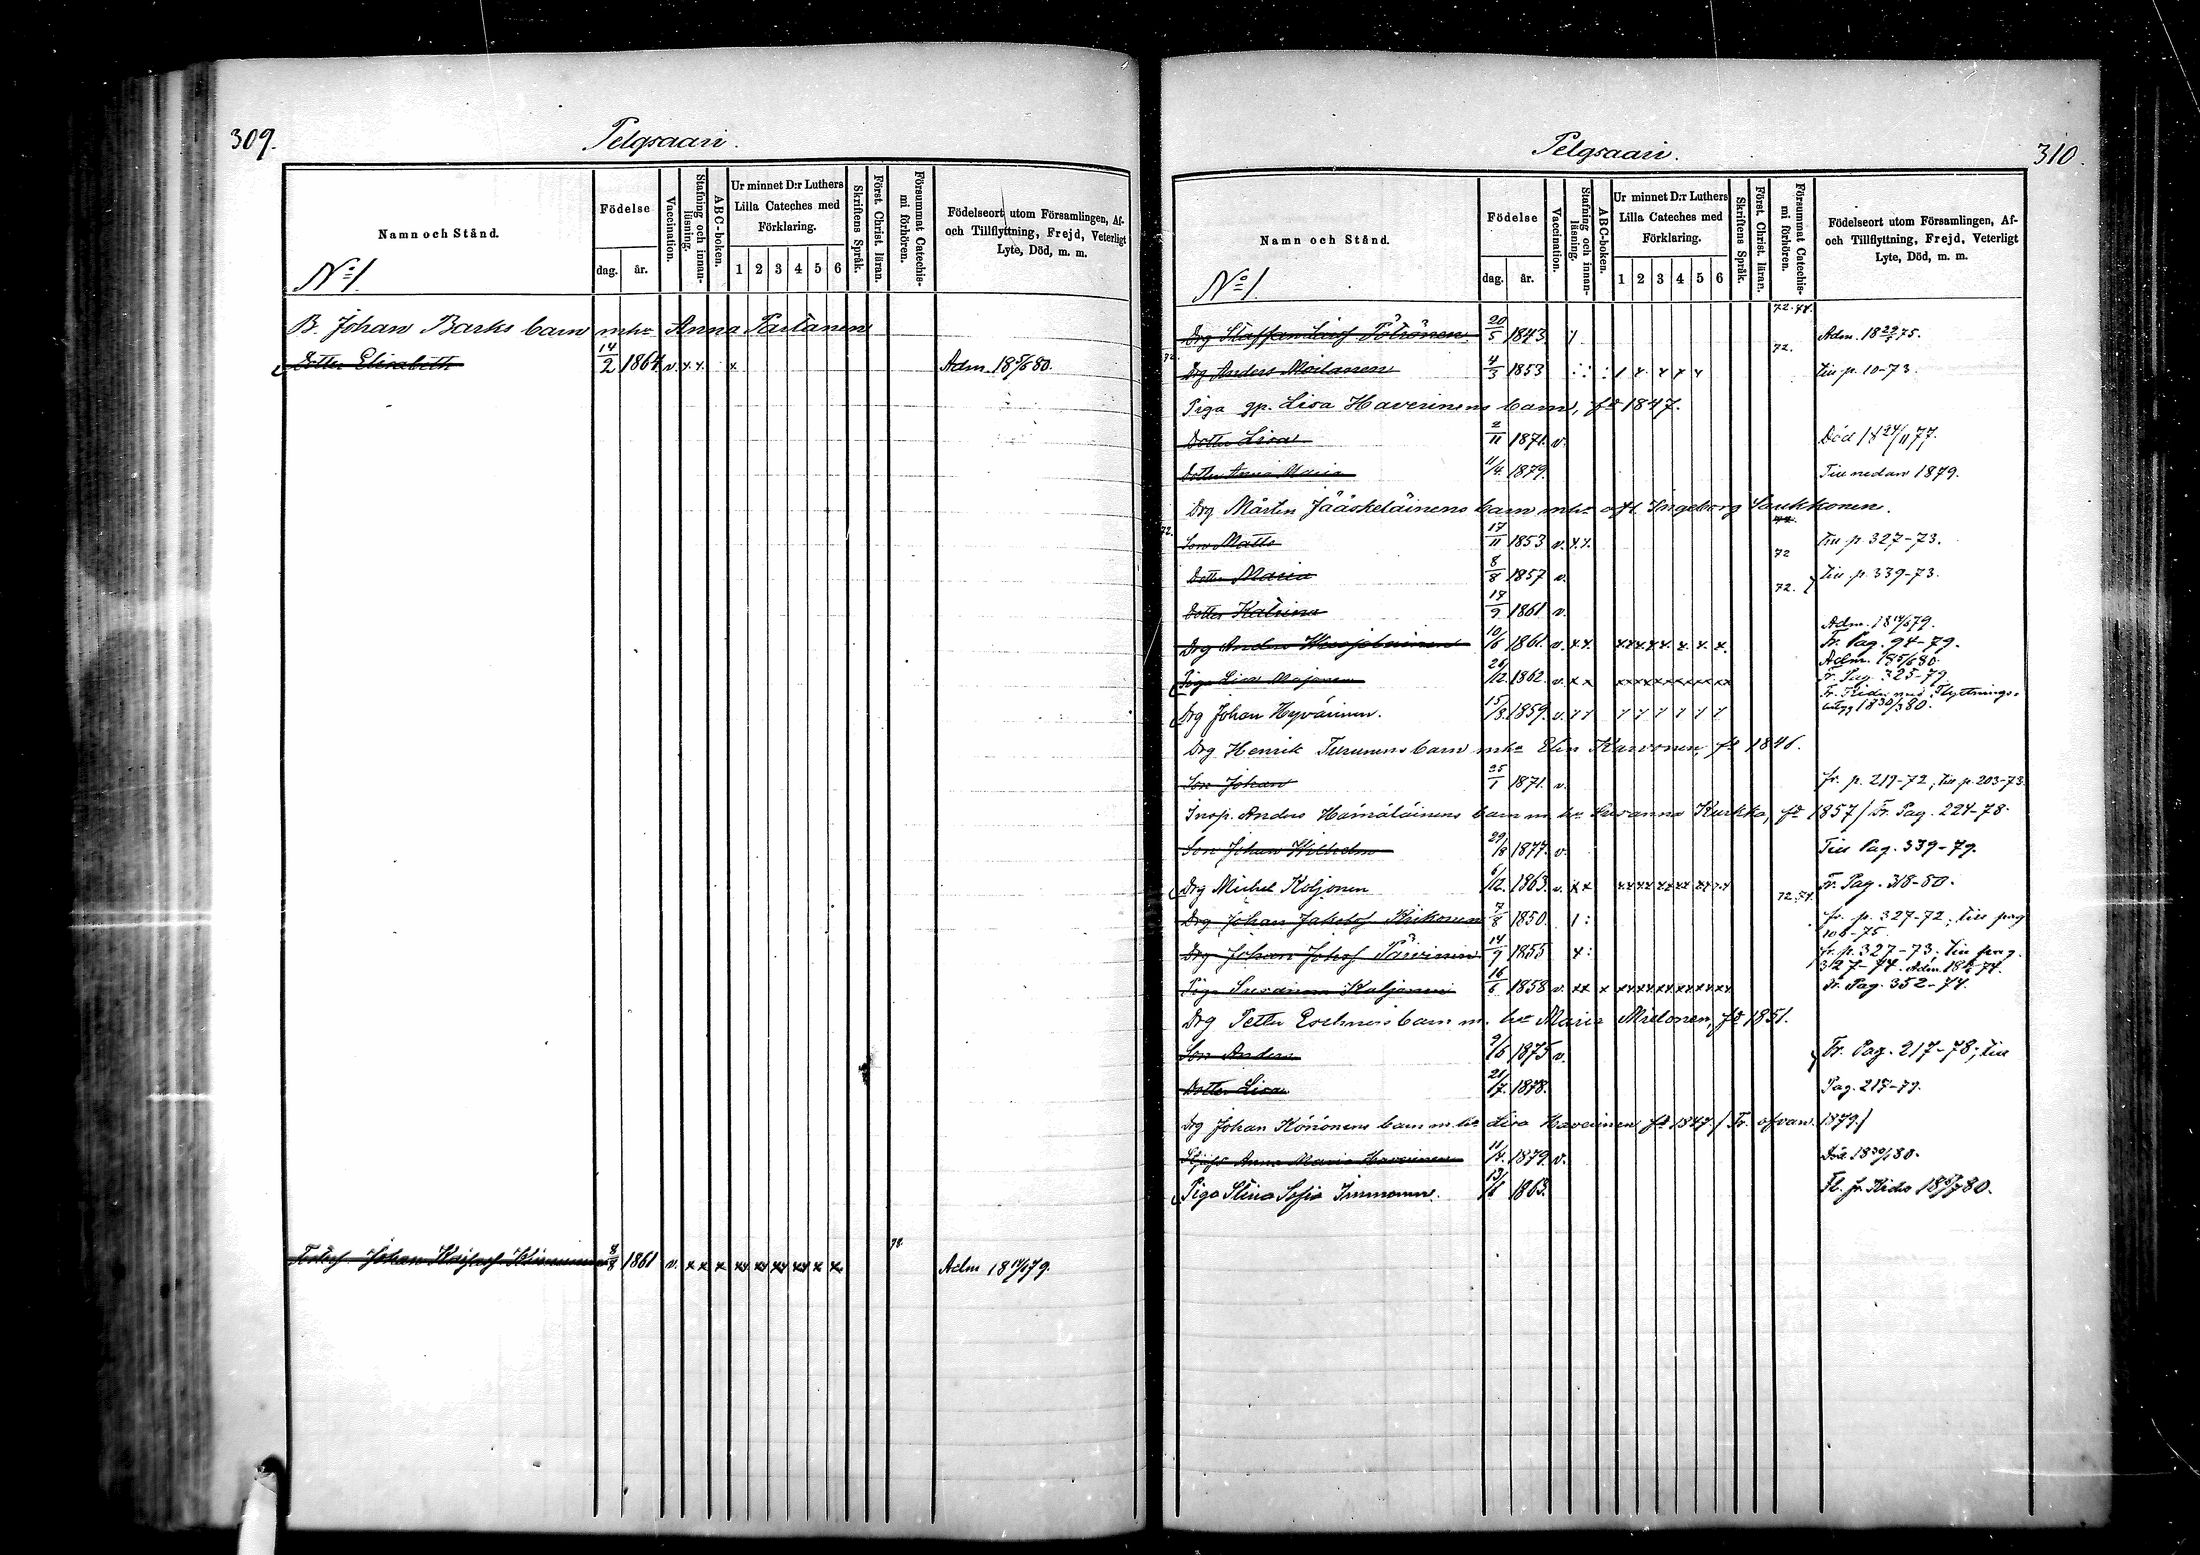 309.
Pelgsaari.
Namn och Stånd.
Födelse
dag. år.
Vaccination.
Stafning och innan-läsning.
ABC-boken.
Ur minnet D:r Luthers Lilla Cateches med Förklaring.
1 2 3 4 5 6
Skriftens Språk.
Först. Christ. läran.
Försummat Catechis-mi förhören.
Födelseort utom Församlingen, Af-
och Tillflyttning, Frejd, Veterligt
Lyte, Död, m. m.
No 1.
B. Johan Barks barn mhu Anna Partanen
Dotter Elisabeth 14/2 1864 v. x x x Adm. 18 5/6 80.
Johan 1861 v. x x x xx xx xx xx x x Adm 18 79.
310.
Pelgsaari.
Namn och Stånd.
Födelse
dag. år.
Vaccination.
Stafning och innan-läsning.
ABC-boken.
Ur minnet D:r Luthers
Lilla Cateches med
Förklaring.
1 2 3 4 5 6
Skriftens Språk.
Först. Christ. läran.
Försummat Catechis-mi förhören.
Födelseort utom Församlingen, Af-
och Tillflyttning, Frejd, Veterligt
Lyte, Död, m. m.
No 1.
Drg Staffan 20/5 1843 Adm. 18 75.
72. Drg Anders Moilanen 4/3 1853 72. Till p. 10-73.
Piga gp. Lisa Haverinens barn, fd 1847.
Dotter Lisa 2/11 1871. v. Död 18 24/11 77.
Dotter Anna Maria 11/4 1879. Till nedan 1879.
Drg Mårten Jääskeläinens barn mhu afl. Ingeborg Saukkonen.
72. Son Matts 17/11 1853 v. x x. Till p. 327-73.
Dotter Maria 8/8 1857 v. 72 Till p. 339-73.
Dotter Katrina 1861 v. 72.
Adm. 18 79.
Drg Anders 10/6 1861. v. x x. Fr. Pag. 94-79.
Adm. 18 5/6 80.
Piga Lisa Majonen 1862. v. x x Fr. Pag. 325-79.
Drg Johan Hyvärinen. 15/8 1859. v. Fr. Kides med Flyttnings-
betyg 18 30/3 80.
Drg Henrik Turunens barn mhu Elin Karvonen, fd 1846.
Son Johan 25/1 1871. v. fr. p. 217-72, till p. 203-73.
Insp. Anders Hämäläinens barn m. hu Susanna Kurkko, fd 1857 / Fr. Pag. 224-78.
Son Johan Wilhelm 29/8 1877. v. Till Pag. 339-79.
Drg Michel Koljonen 6/12 1863. v. x x Fr. Pag. 318-80.
Drg Johan Jakobsf. 7/8 1850. 1 : 72.74. fr. p. 327-72, till pag
106-75.
Drg Johan 14/9 1855 x : fr. p. 327-73; till pag.
327-74. Adm. 18 74.
Piga Susanna Koljonen 16/6 1858 v. xx x Fr. Pag. 352-74.
Drg Petter Eschners barn m. hu Maria Mielonen, fd 1851.
Son Anders 9/6 1875 v. Fr. Pag. 217-78; till
Dotter Lisa 21/7 1878. Pag. 217-79.
Drg Johan Könönens barn m. hu Lisa Haverinen fd 1847. / Fr. ofvan. 1879 /
Anna Maria Haverinen 11/4 1879. v. Död 18 80.
Piga Stina Sofia Immonen. 13/6 1863. Fl. fr. Kides 18 80.